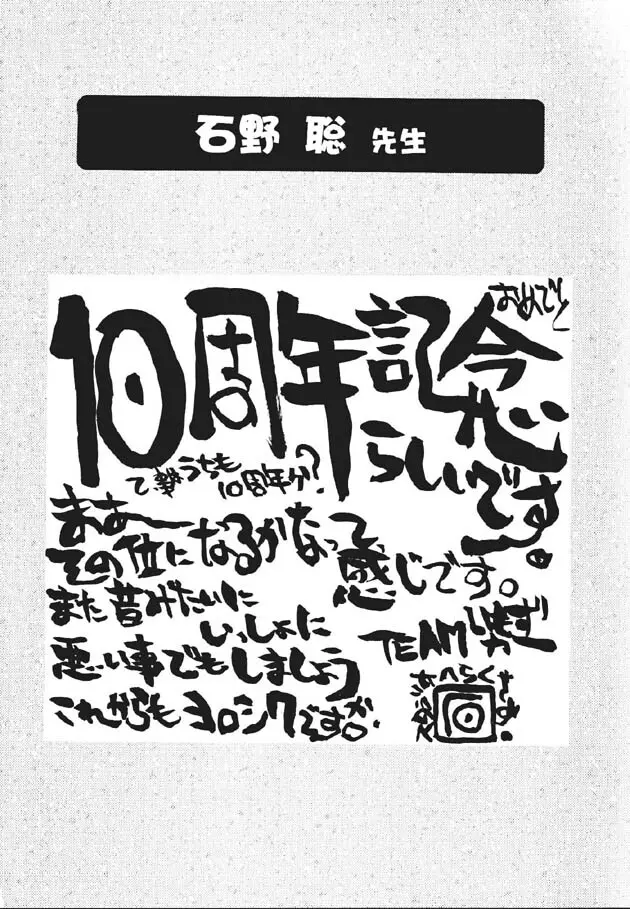 石野 聡 先生
おめでと
10周年記念
らしいです。
て事うちも
10周年か?
まあー
その位になるかなって
感じです。
また昔みたいに
いっしょに
悪い事でもしましょう
これからもヨロシクですが。
TEAM